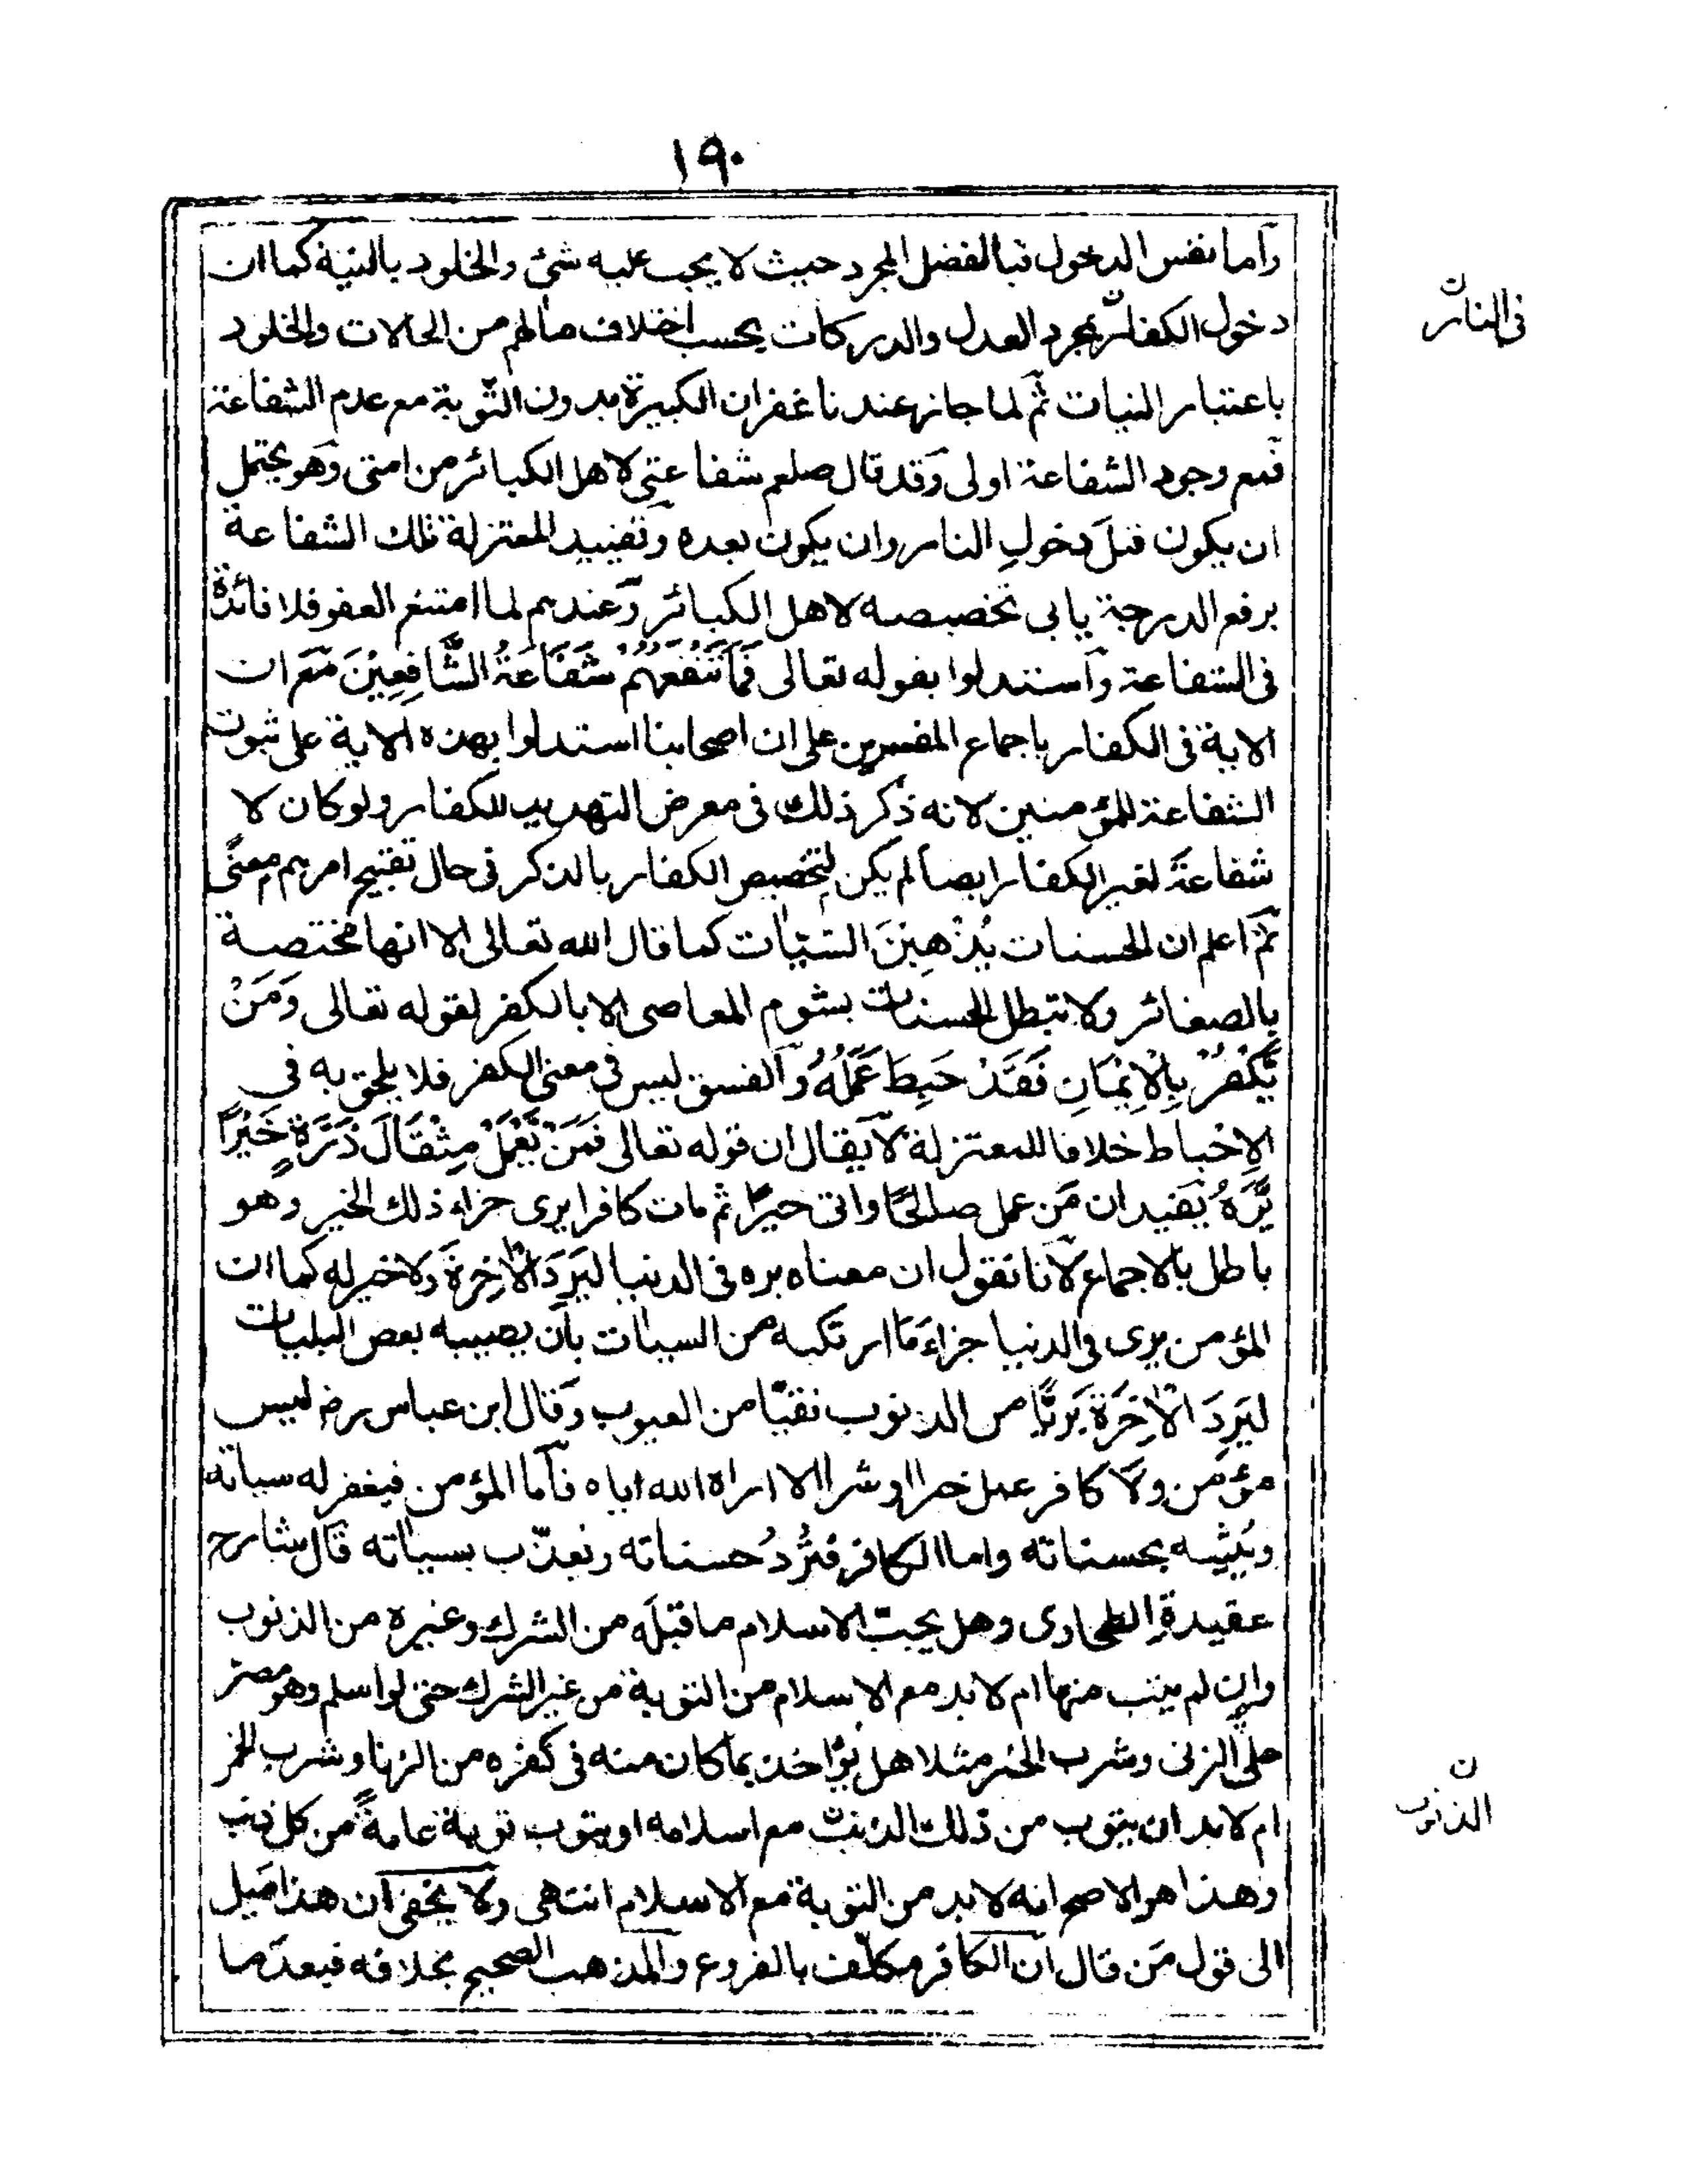 ١٩٠
وأما نفس الدخول فبالفضل المجرد حيث لا يجب عليه شئ والخلود بالنية كما ان
دخول الكفار بمجرد العدل والدركات بحسب اختلاف مالهم من الحالات والخلود
فى النار
باعتبار النيات ثم لما جاز عندنا غفران الكبيرة بدون التوبة مع عدم الشفاعة
فمع وجود الشفاعة اولى وقد قال صلعم شفاعتى لاهل الكبائر من امتى وهو يحتمل
ان يكون قبل دخول النار وان يكون بعده وتقييد المعتزلة تلك الشفاعة
برفع الدرجة يابى تخصيصه لاهل الكبائر وعندهم لما امتنع العفو فلا فائدة
فى الشفاعة واستدلوا بقوله تعالى فَمَا تَنْفَعُهُمْ شَفَاعَةُ الشَّافِعِيْنَ مع ان
الاية فى الكفار باجماع المفسرين على ان اصحابنا استدلوا بهذه الاية على ثبوت
الشفاعة للمؤمنين لانه ذكر ذلك فى معرض التهديد للكفار ولو كان لا
شفاعة لغير الكفار ايضا لم يكن لتخصيص الكفار بالذكر فى حال تقبيح امرهم معنًى
ثم اعلم ان الحسنات يُذْهِبْنَ السَّيِّاٰت كما قال الله تعالى الا انها مختصة
بالصغائر ولا تبطل الحسنات بشوم المعاصى الا بالكفر لقوله تعالى وَمَنْ
يَّكْفُرْ بِالْاِيْمَانِ فَقَدْ حَبِطَ عَمَلُهُ والفسق ليس فى معنى الكفر فلا يلحق به فى
الاِحْباط خلافا للمعتزلة لا يقال ان قوله تعالى فَمَنْ يَّعْمَلْ مِثْقَالَ ذَرَّةٍ خَيْرًا
يَّرَهُ يفيد ان من عمل صالحًا واتى خيرًا ثم مات كافرا يرى جزاء ذلك الخير وهو
باطل بالاجماع لانا نقول ان معناه يره فى الدنيا ليَرِدَ الاٰخِرةَ ولا خير له كما ان
المؤمن يرى فى الدنيا جزاءَ ما ارتكبه من السيات بان يصيبه بعض البليات
ليَرِدَ الاٰخِرَةَ بَريًّا من الذنوب نقيّا من العيوب وقال ابن عباس رض ليس
مؤمن ولا كافر عمل خيرا او شرا الا اراه الله اياه فأما المؤمن فيغفر له سياته
ويُثيبه بحسناته واما الكافر فتُردُّ حسناته ويعذّب بسياته قال شارح
عقيدةِ الطحاوى وهل يجبّ الاسلام ما قبله من الشرك وغيره من الذنوب
وان لم يتب منها ام لا بد مع الاسلام من التوبة من غير الشرك حتى لو اسلم وهو مصر
على الزنى وشرب الخمر مثلا هل يؤاخذ بما كان منه فى كفره من الزنا وشرب الخمر
ام لا بد ان يتوب من ذلك الذنب مع اسلامه او يتوب توبة عامةً من كل ذنب
الذنوب
وهذا هو الاصح انه لا بد من التوبة مع الاسلام انتهى ولا يخفى ان هذا ميل
الى قول من قال ان الكافر مكلّف بالفروع والمذهب الصحيح بخلافه فبعدَ ما